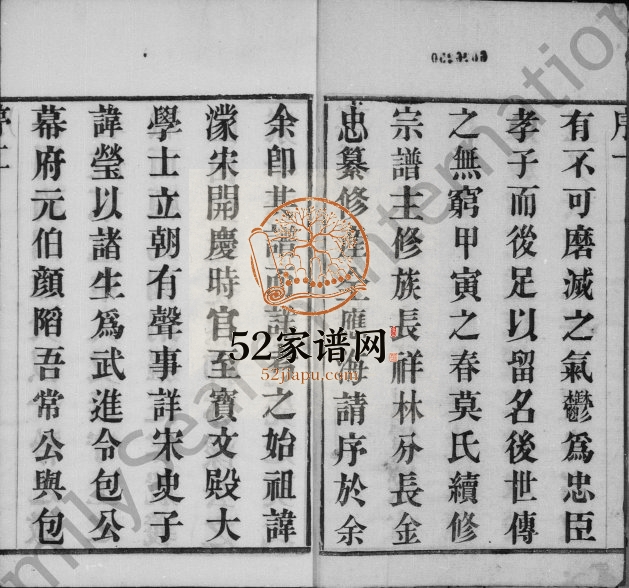 序一
有不可磨滅之氣鬱爲忠臣
孝子而後足以留名後世傳
之無窮甲寅之春莫氏續修
宗譜主修族長祥林分長金
忠纂修全應海請序於余
余卽其譜而詳之始祖諱
濛宋開慶時官至寶文殿大
學士立朝有聲事詳宋史子
諱瑩以諸生爲武進令包公
幕府元伯顏陷吾常公與包
序二
52家谱网
52jiapu.com
milySearch International